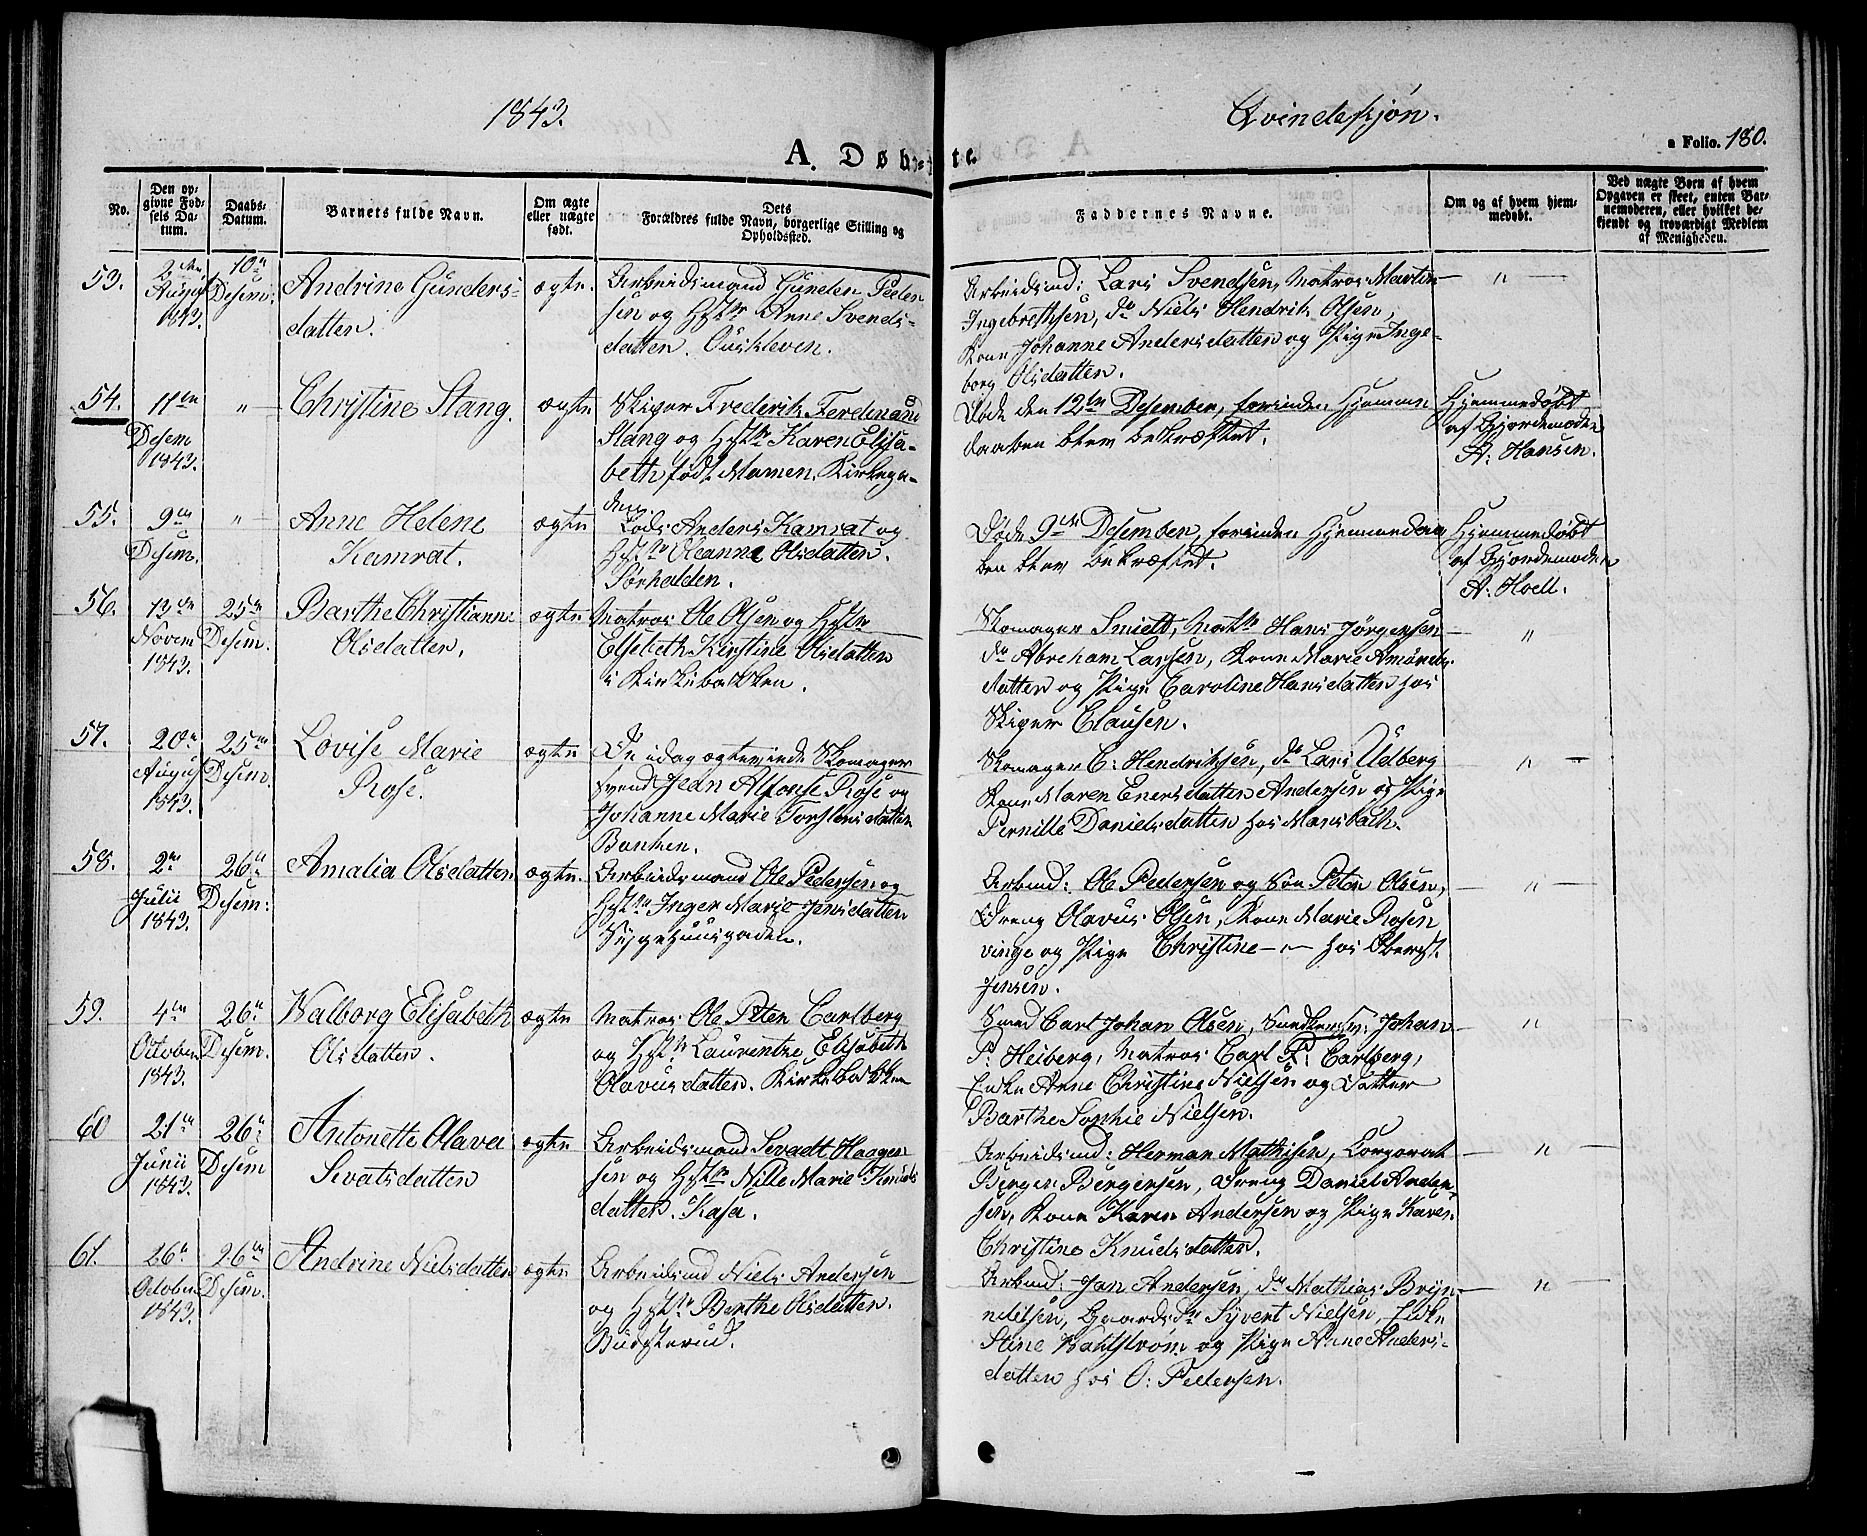 1843.
Qvindekjøn.
A. Døb-
te.
a Folio. 180.
No.
Den op-
givne Fød-
sels Da-
tum.
Daabs-
Datum.
Barnets fulde Navn.
Om ægte
eller uægte
født.
Dets
Forældres fulde Navn, borgerlige Stilling og
Opholdssted.
Faddernes Navne.
Om og af hvem hjem-
medøbt.
Ved uægte Børn af hvem
Opgaven er skeet, enten Bar-
nemoderen, eller hvilket be-
kjendt og troværdigt Medlem
af Menigheden.
53.
2den
August
1843.
10n
Desem:
Andrine Gunders-
datter.
ægte.
Arbeidsmand Gunder Peder
sen og Hstr Anne Svends-
datter.
Arbeidsmd: Lars Svendsen, Matros Martin
Ingebrethsen, do Niels Hendrik Olsen,
Kone Johanne Andersdatter og Pige Inge-
borg Olsdatter.
— " —
54.
11te
Desem
1843.
" —
Christine Stang.
ægte
Skiper Frederik Ferdinand
Stang og Hstr Karen Elisa-
beth født Mamen. Kirkega-
den.
Døde den 12te Desember, forinden Hjemme
daaben blev bekræftet.
Hjemmedøbt
af Gjordemoder
A: Hansen.
55.
9de
Desem.
" —
Anne Helene
Kamrat.
ægte
Lods Anders Kamrat og
Hstr Oleanne Olsdatter.
Sørhalden.
Døde 9de Desember, forinden Hjemmedaa
ben blev bekræftet.
Hjemmedøbt
af Gjordemoder
A: Hoell.
56.
13de
Novem
1843.
25de
Desem.
Barthe Christianne
Olsdatter.
ægte
Matros Ole Olsen og Hstr
Elsebeth Kirstine Olsdatter
i Kirkebakken.
Skomager Smidt, Mats Hans Jörgensen
do Abreham Larsen, Kone Marie Amunds-
datter og Pige Caroline Hansdatter hos
Skiper Clausen.
— " —
57.
20n
August
1843.
25de
Desem.
Lovise Marie
Rose.
ægte
De idag ægteviede Skomager
svend Jean Alfonse Rose og
Johanne Marie Torstensdatter
Banken.
Skomager C: Hendriksen, do Lars Udberg
Kone Maren Enersdatter Andersen og Pige
Pernille Danielsdatter hos Mansbach.
— " —
58.
2n
Julii
1843.
26n
Desem:
Amalia Olsdatter
ægte.
Arbeidsmand Ole Pedersen og
Hstr Inger Marie Jensdatter
Sygehuusgaden.
Arbmd: Ole Pedersen og Søn Peter Olsen,
Dreng Olavus Olsen, Kone Marie Rosen
vinge og Pige Christine — " — hos Oberst.
Jensen.
— " —
59.
4de
October
1843.
26n
Desem.
Walborg Elisabeth
Olsdatter.
ægte
Matros Ole Peter Carlberg
og Hstr Laurentze Elisabeth
Olavusdatter. Kirkebakken
Smed Carl Johan Olsen, Snedkersv: Johan
P: Heiberg, Matros Carl P: Carlberg,
Enke Anne Christine Nielsen og Datter
Barthe Sophie Nielsen.
— " —
60
21de
Junii
1843.
26n
Desem
Antonette Olava
Sivatsdatter
ægte
Arbeidsmand Sevadt Haagen
sen og Hstr Nille Marie Knuds
datter. Kasa.
Arbeidsmd: Herman Mathisen, Corporal
Berger Bergersen, Dreng Daniel Ander-
sen, Kone Karen Andersen og Pige Karen
Christine Knudsdatter.
— " —
61.
26n
October
1843.
26de
Desem.
Andrine Nielsdatter
ægte
Arbeidsmd Niels Andersen
og Hstr Berthe Olsdatter.
Arbmd: Jan Andersen, do Mathias Bryn-
nildsen, Gaardsdr Syvert Nielsen, Enke
Stine Wahlstrøm og Pige Anne Anders-
datter hos O: Pedersen.
— " —